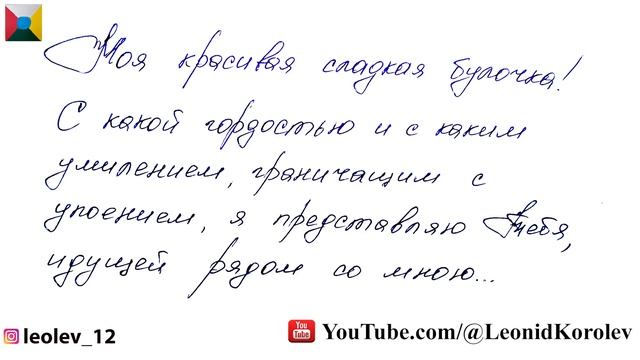 Моя красивая сладкая булочка!
С какой гордостью и с каким
умилением, граничащим с
упоением, я представляю Тебя,
идущей рядом со мною...
leolev_12
You Tube YouTube.com/@LeonidKorolev